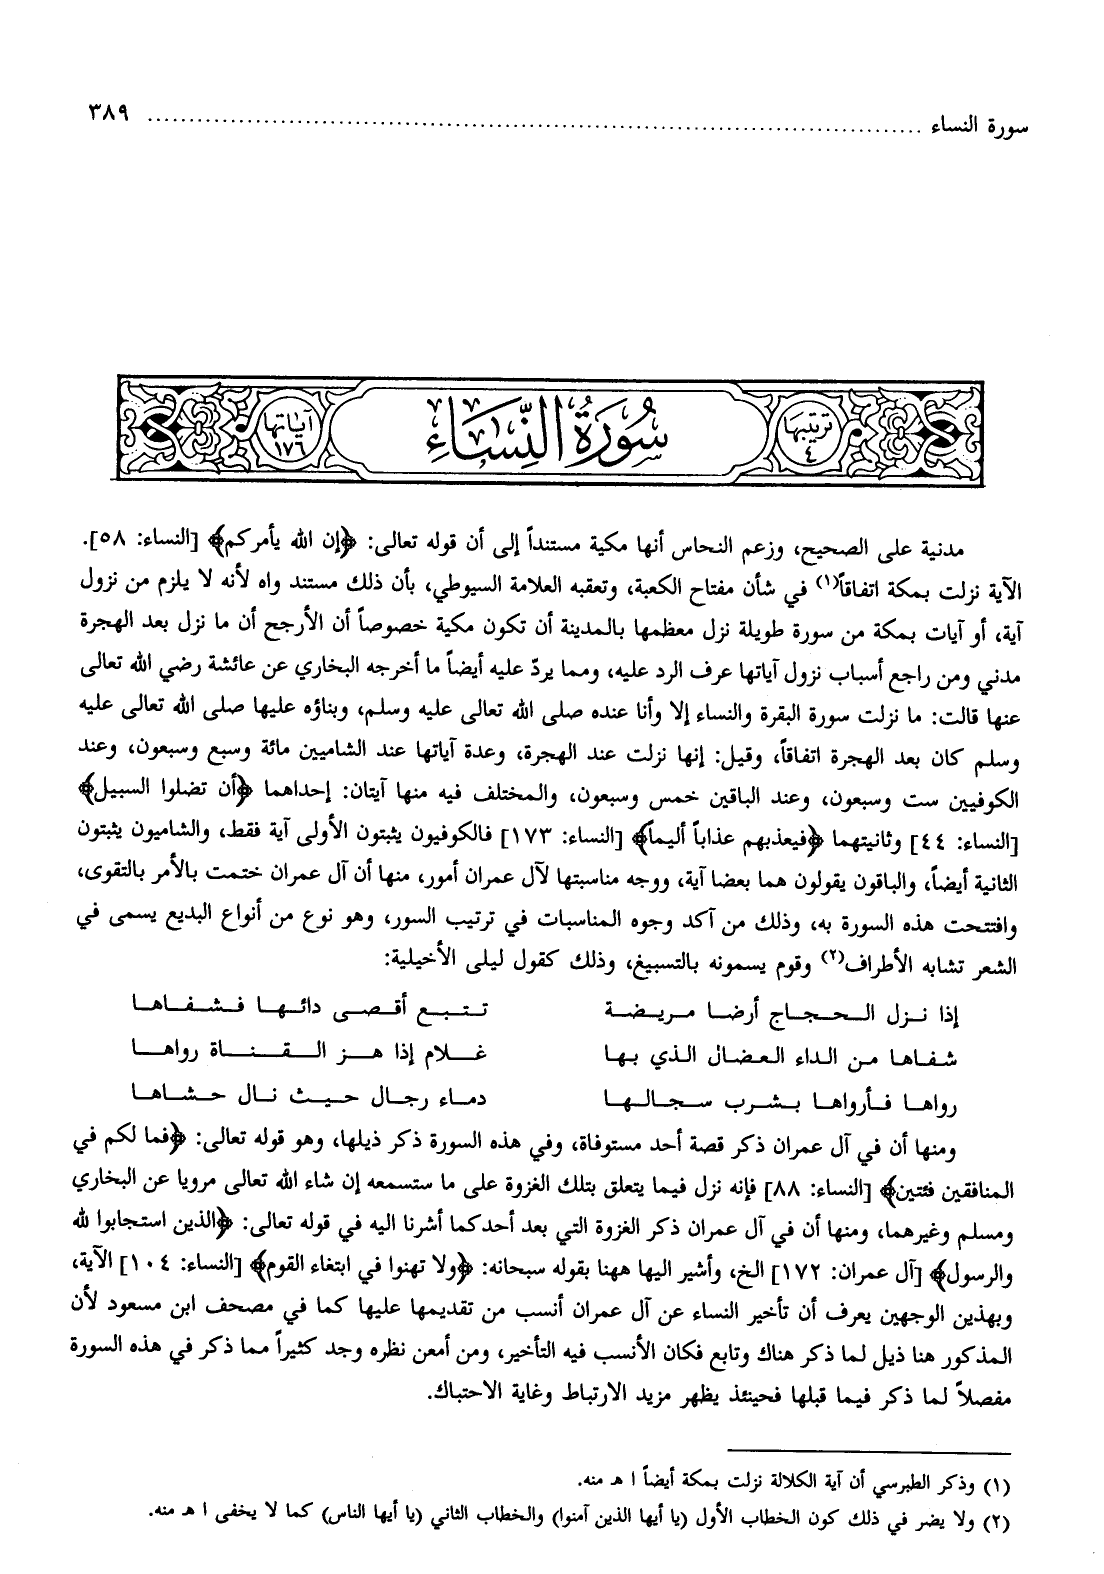 سورة النساء ........................................................................ ٣٨٩
ترتيبها ٤
سُورَةُ النِّسَاءِ
آياتها ١٧٦
مدنية على الصحيح، وزعم النحاس أنها مكية مستنداً إلى أن قوله تعالى: ﴿إن الله يأمركم﴾ [النساء: ٥٨].
الآية نزلت بمكة اتفاقاً(١) في شأن مفتاح الكعبة، وتعقبه العلامة السيوطي، بأن ذلك مستند واه لأنه لا يلزم من نزول
آية، أو آيات بمكة من سورة طويلة نزل معظمها بالمدينة أن تكون مكية خصوصاً أن الأرجح أن ما نزل بعد الهجرة
مدني ومن راجع أسباب نزول آياتها عرف الرد عليه، ومما يردّ عليه أيضاً ما أخرجه البخاري عن عائشة رضي الله تعالى
عنها قالت: ما نزلت سورة البقرة والنساء إلا وأنا عنده صلى الله تعالى عليه وسلم، وبناؤه عليها صلى الله تعالى عليه
وسلم كان بعد الهجرة اتفاقاً، وقيل: إنها نزلت عند الهجرة، وعدة آياتها عند الشاميين مائة وسبع وسبعون، وعند
الكوفيين ست وسبعون، وعند الباقين خمس وسبعون، والمختلف فيه منها آيتان: إحداهما ﴿أن تضلوا السبيل﴾
[النساء: ٤٤] وثانيتهما ﴿فيعذبهم عذاباً أليماً﴾ [النساء: ١٧٣] فالكوفيون يثبتون الأولى آية فقط، والشاميون يثبتون
الثانية أيضاً، والباقون يقولون هما بعضا آية، ووجه مناسبتها لآل عمران أمور، منها أن آل عمران ختمت بالأمر بالتقوى،
وافتتحت هذه السورة به، وذلك من آكد وجوه المناسبات في ترتيب السور، وهو نوع من أنواع البديع يسمى في
الشعر تشابه الأطراف(٢) وقوم يسمونه بالتسبيغ، وذلك كقول ليلى الأخيلية:
إذا نزل الحجاج أرضا مريضة تتبع أقصى دائها فشفاها
شفاها من الداء العضال الذي بها غلام إذا هز القناة رواها
رواها فأرواها بشرب سجالها دماء رجال حيث نال حشاها
ومنها أن في آل عمران ذكر قصة أحد مستوفاة، وفي هذه السورة ذكر ذيلها، وهو قوله تعالى: ﴿فما لكم في
المنافقين فئتين﴾ [النساء: ٨٨] فإنه نزل فيما يتعلق بتلك الغزوة على ما ستسمعه إن شاء الله تعالى مرويا عن البخاري
ومسلم وغيرهما، ومنها أن في آل عمران ذكر الغزوة التي بعد أحد كما أشرنا اليه في قوله تعالى: ﴿الذين استجابوا لله
والرسول﴾ [آل عمران: ١٧٢] الخ، وأشير اليها ههنا بقوله سبحانه: ﴿ولا تهنوا في ابتغاء القوم﴾ [النساء: ١٠٤] الآية،
وبهذين الوجهين يعرف أن تأخير النساء عن آل عمران أنسب من تقديمها عليها كما في مصحف ابن مسعود لأن
المذكور هنا ذيل لما ذكر هناك وتابع فكان الأنسب فيه التأخير، ومن أمعن نظره وجد كثيراً مما ذكر في هذه السورة
مفصلاً لما ذكر فيما قبلها فحينئذ يظهر مزيد الارتباط وغاية الاحتباك.
(١) وذكر الطبرسي أن آية الكلالة نزلت بمكة أيضاً ا هـ منه.
(٢) ولا يضر في ذلك كون الخطاب الأول (يا أيها الذين آمنوا) والخطاب الثاني (يا أيها الناس) كما لا يخفى ا هـ منه.